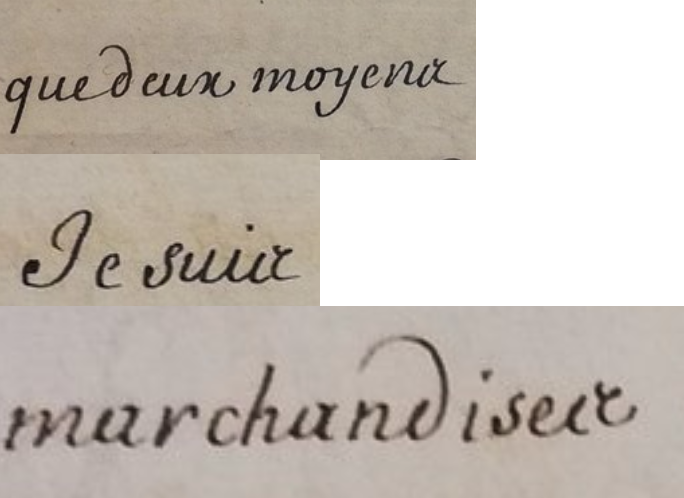 que deux moyens
Je suis
marchandises